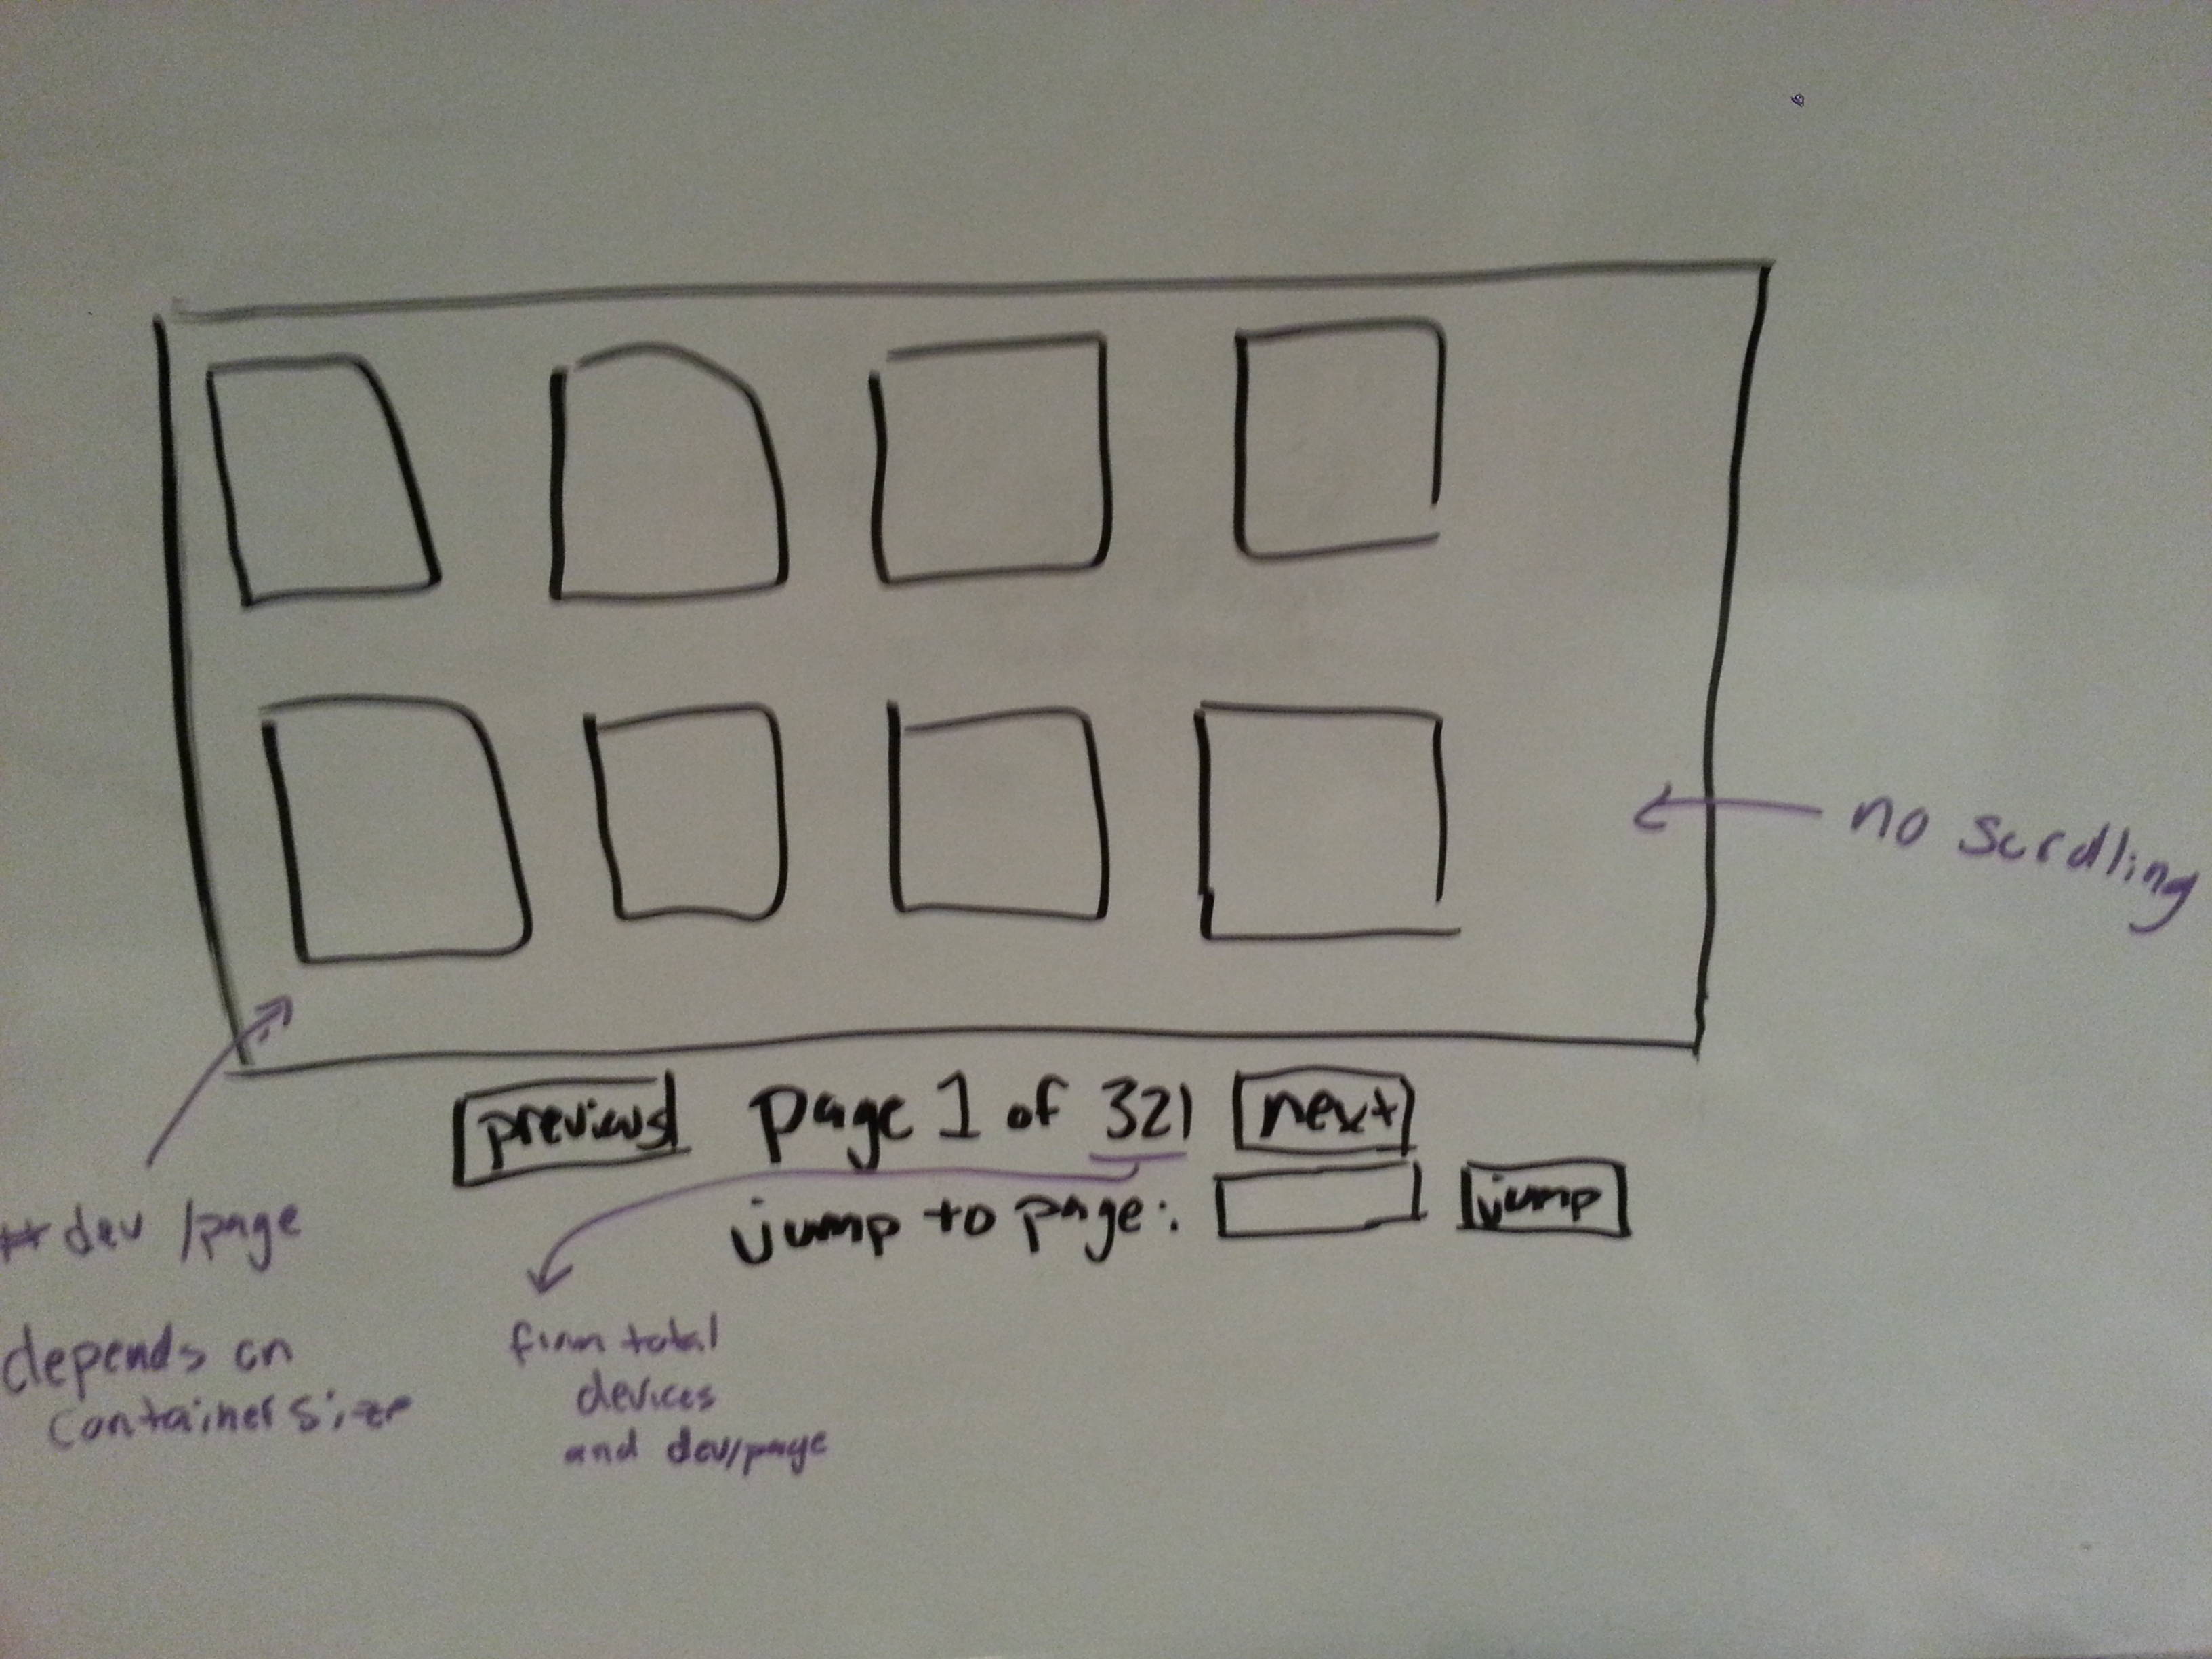 no scrolling
previous page 1 of 321 next
jump to page: jump
# dev /page
depends on
container size
from total
devices
and dev/page